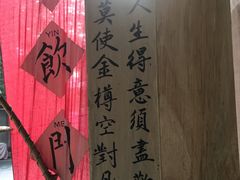 人生得意須盡歡
莫使金樽空對月
YIN
飲
门
ME